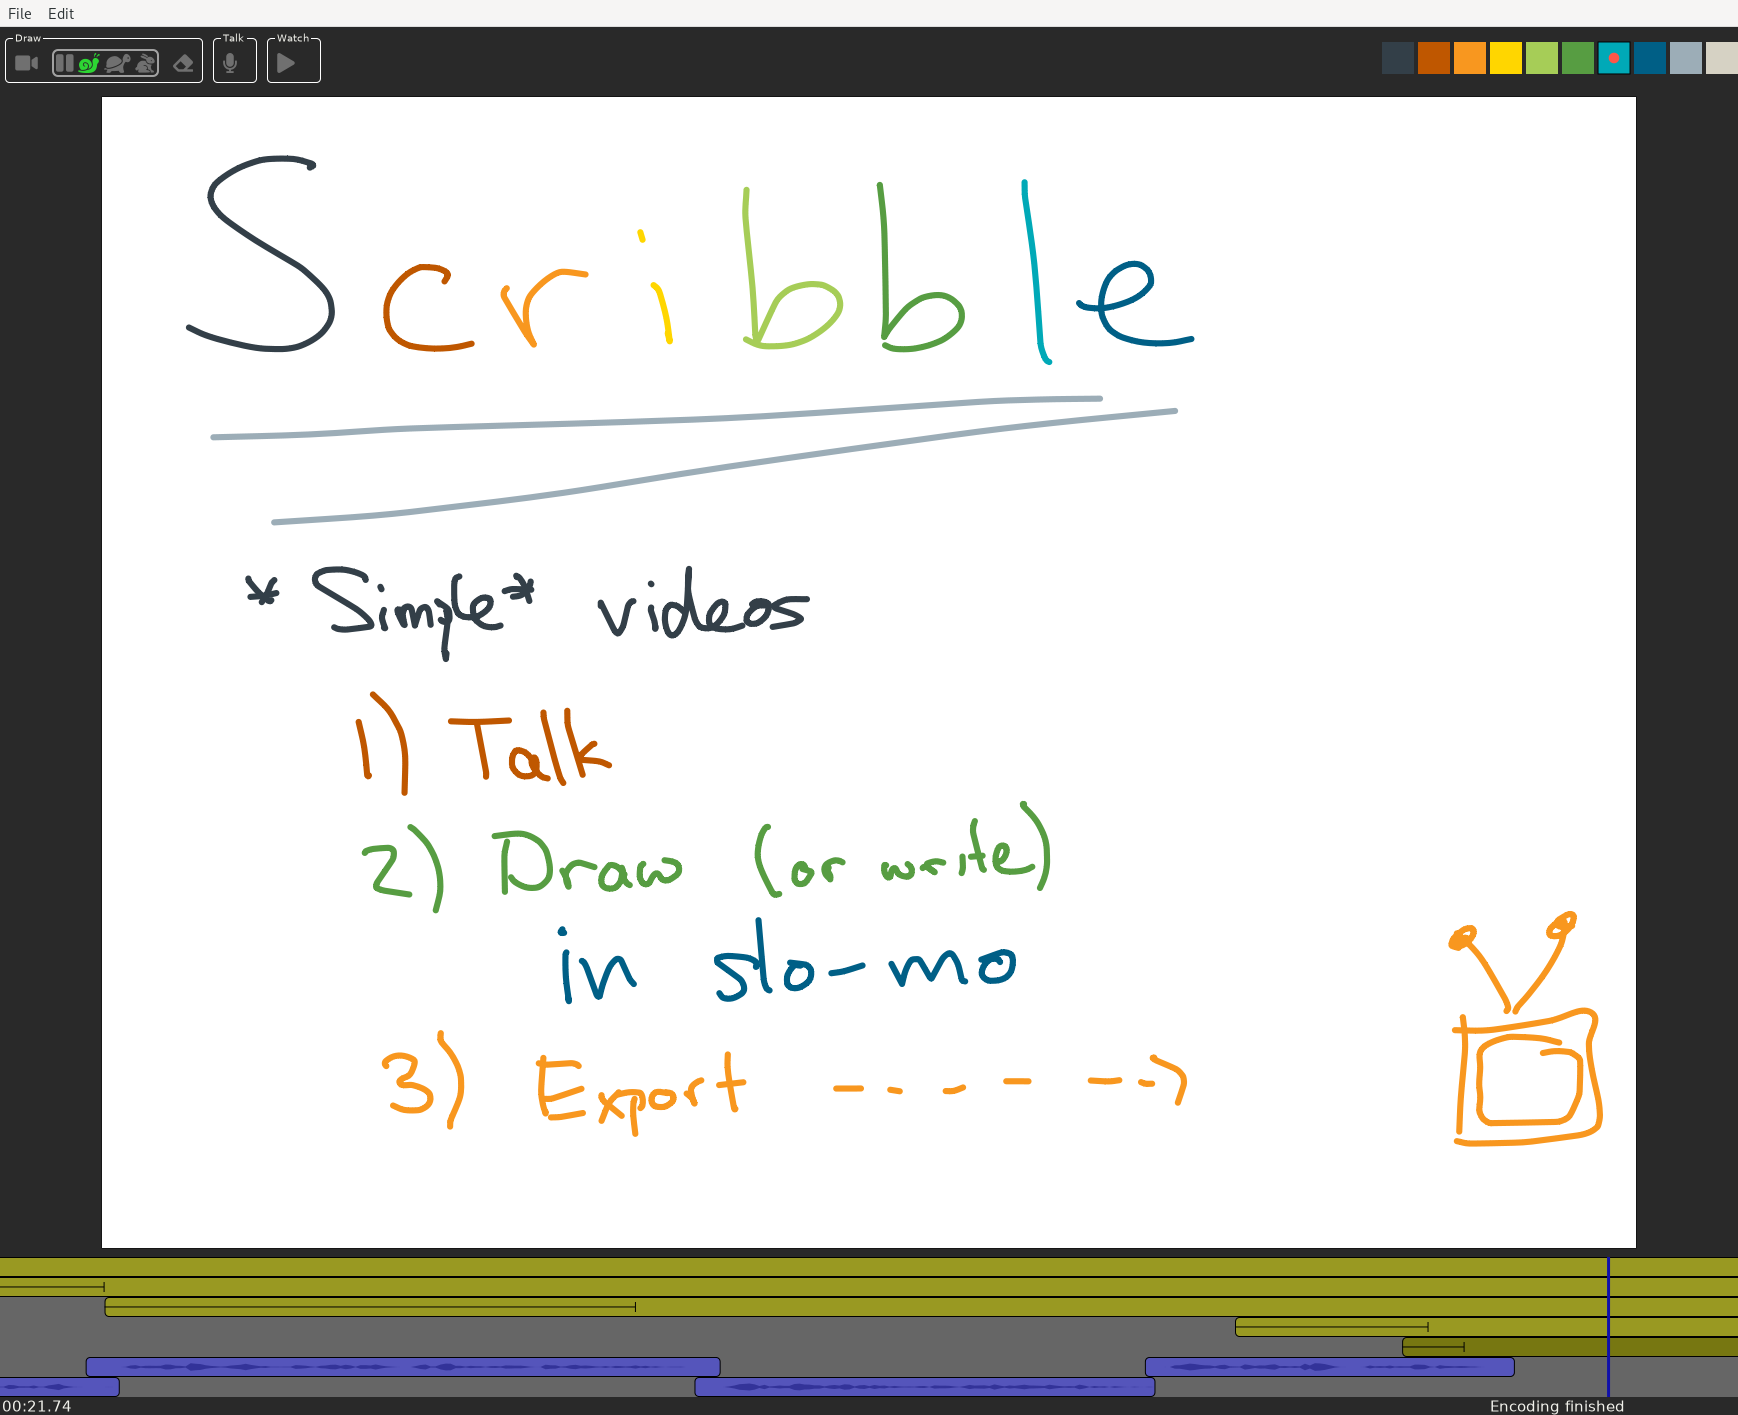 File Edit
Draw Talk Watch
Scribble
*Simple* videos
1) Talk
2) Draw (or write)
in slo-mo
3) Export - - - - - ->
00:21.74 Encoding finished